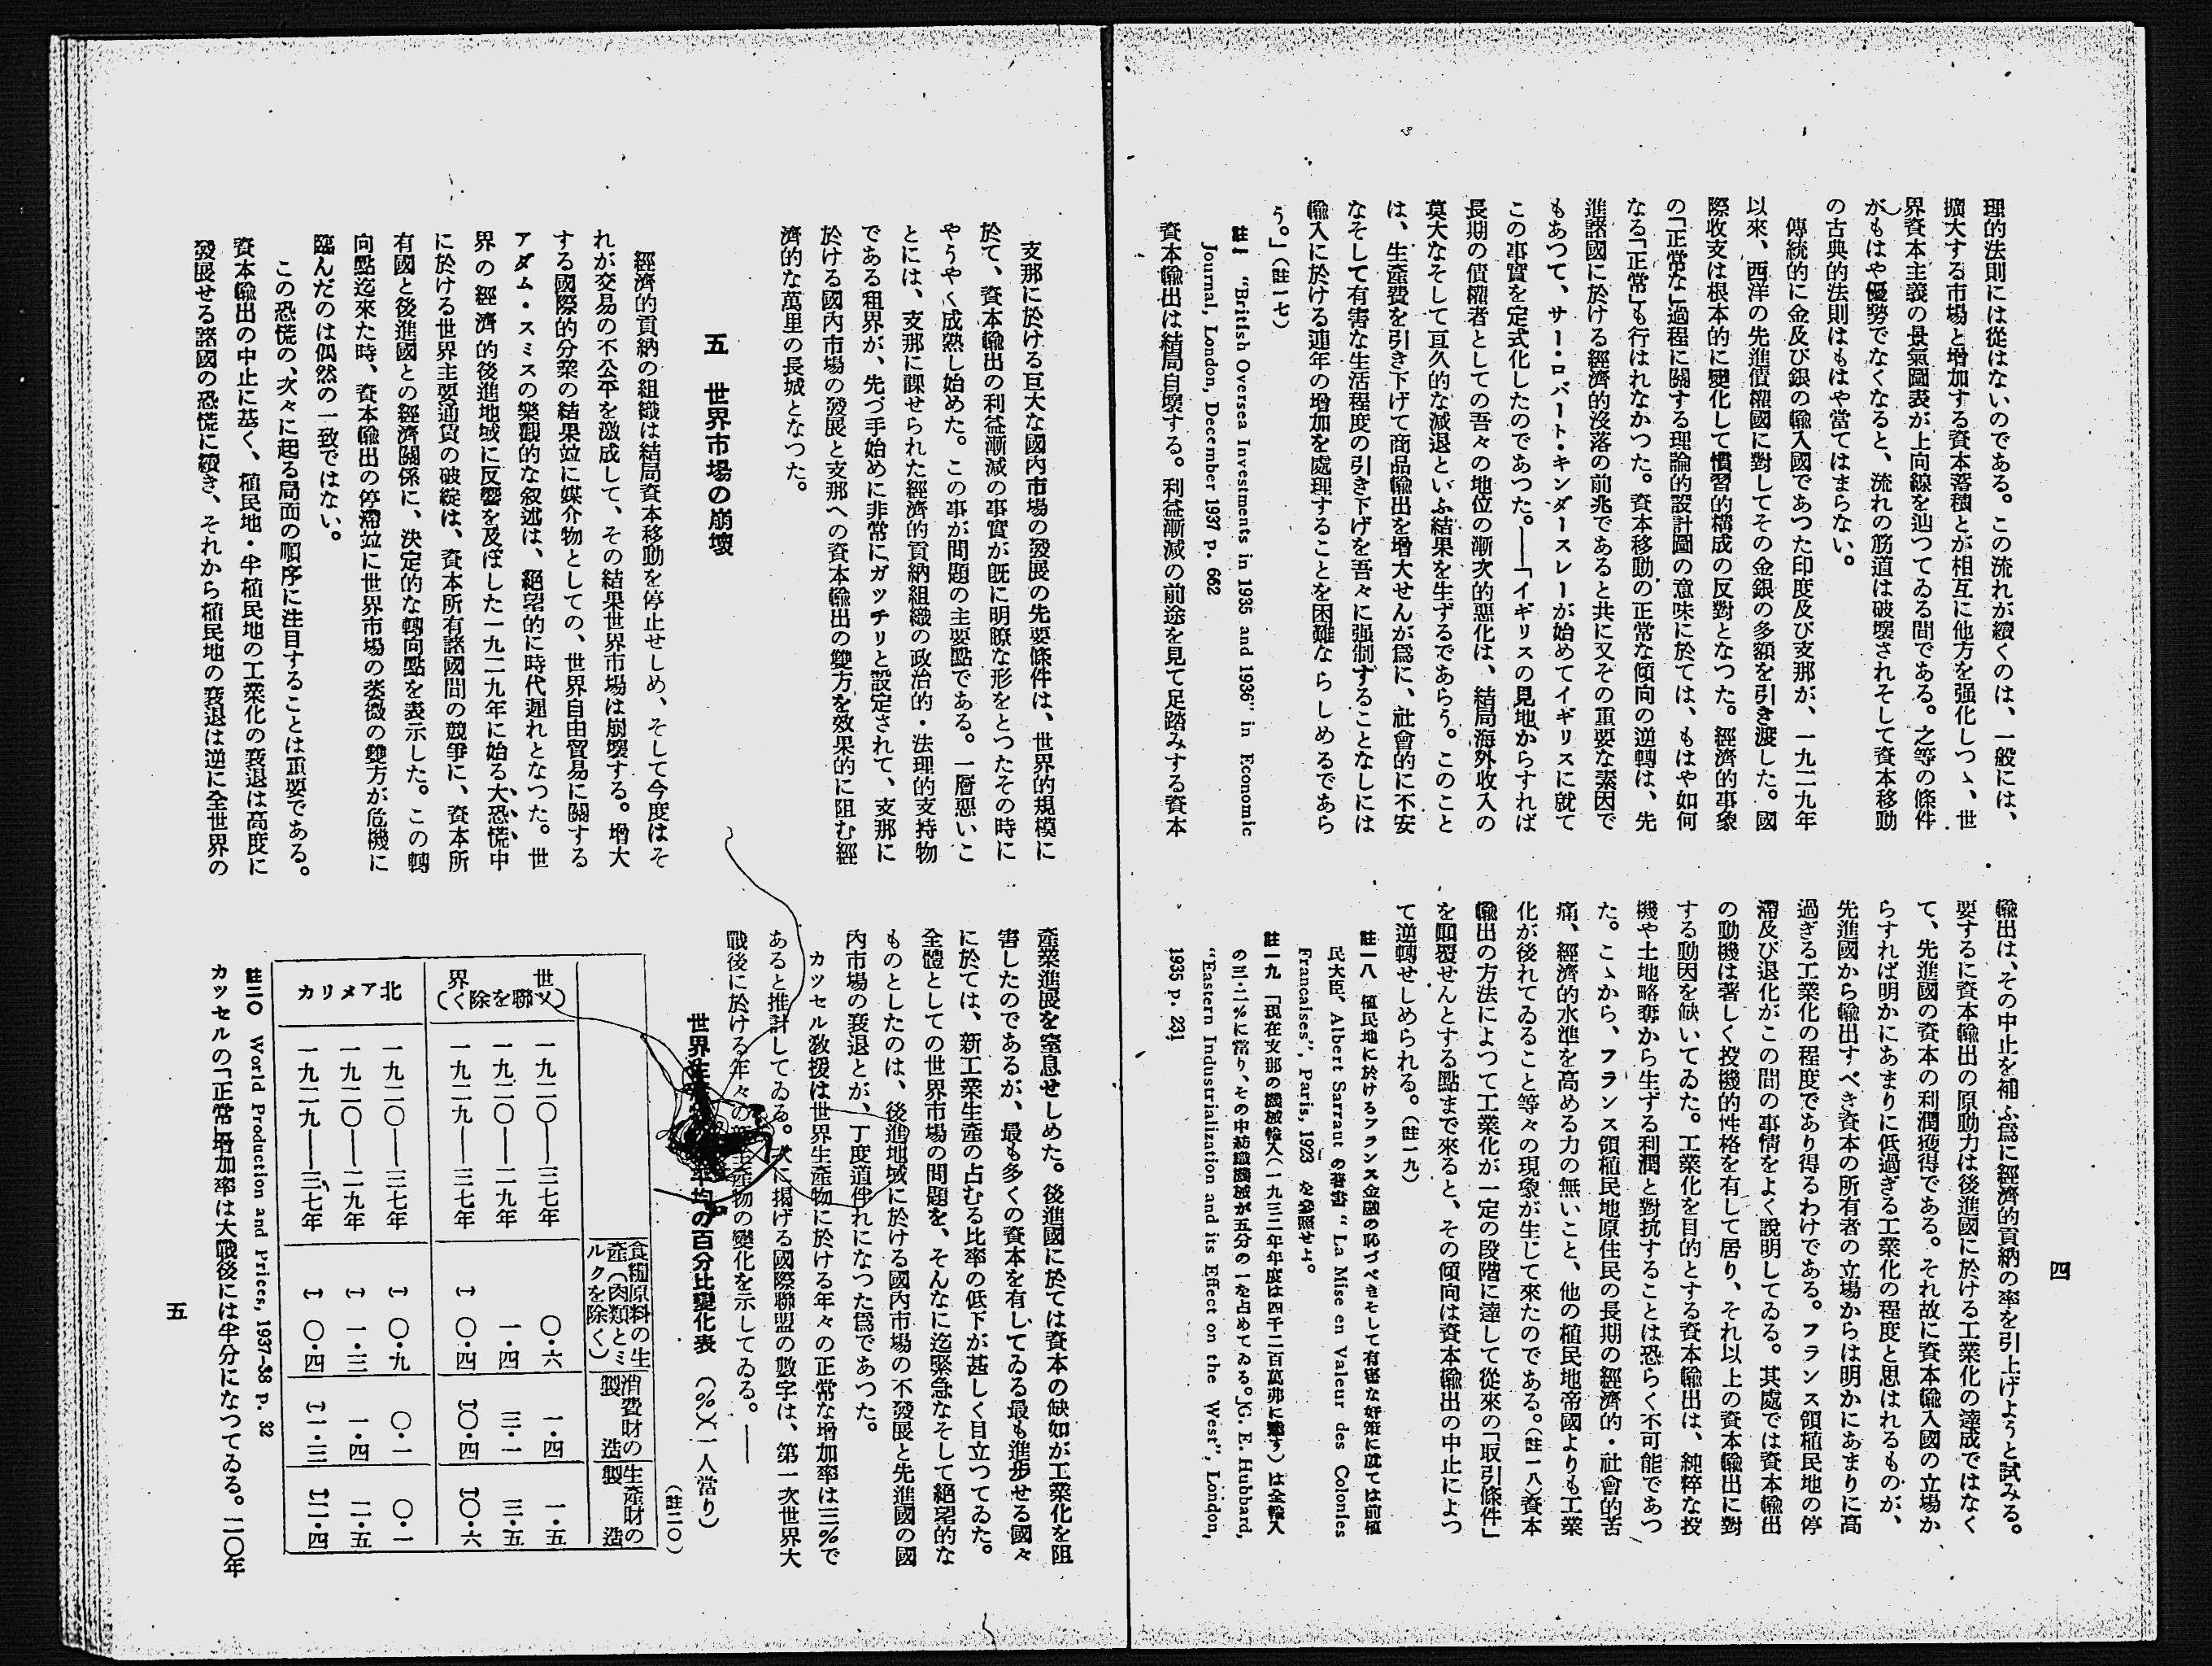 四
理的法則には從はないのである。この流れが續くのは、一般には、
擴大する市場と增加する資本蓄積とが相互に他方を强化しつゝ、世
界資本主義の景氣圖表が上向線を辿つてゐる間である。之等の條件
がもはや優勢でなくなると、流れの筋道は破壞されそして資本移動
の古典的法則はもはや當てはまらない。
傳統的に金及び銀の輸入國であつた印度及び支那が、一九二九年
以來、西洋の先進債權國に對してその金銀の多額を引き渡した。國
際收支は根本的に變化して慣習的構成の反對となつた。經濟的事象
の「正常な」過程に關する理論的設計圖の意味に於ては、もはや如何
なる「正常」も行はれなかつた。資本移動の正常な傾向の逆轉は、先
進諸國に於ける經濟的沒落の前兆であると共に又その重要な素因で
もあつて、サー・ロバート・キンダースレーが始めてイギリスに就て
この事實を定式化したのであつた。――「イギリスの見地からすれば
長期の債權者としての吾々の地位の漸次的惡化は、結局海外收入の
莫大なそして亘久的な減退といふ結果を生ずるであらう。このこと
は、生產費を引き下げて商品輸出を增大せんが爲に、社會的に不安
なそして有害な生活程度の引き下げを吾々に强制することなしには
輸入に於ける連年の增加を處理することを困難ならしめるであら
う。」（註一七）
“British Oversea Investments in 1935 and 1936” in Economic
Journal, London, December 1937 p. 662
資本輸出は結局自壞する。利益漸減の前途を見て足踏みする資本
輸出は、その中止を補ふ爲に經濟的貢納の率を引上げようと試みる。
要するに資本輸出の原動力は後進國に於ける工業化の達成ではなく
て、先進國の資本の利潤獲得である。それ故に資本輸入國の立場か
らすれば明かにあまりに低過ぎる工業化の程度と思はれるものが、
先進國から輸出すべき資本の所有者の立場からは明かにあまりに高
過ぎる工業化の程度であり得るわけである。フランス領植民地の停
滯及び退化がこの間の事情をよく說明してゐる。其處では資本輸出
の動機は著しく投機的性格を有して居り、それ以上の資本輸出に對
する動因を缺いてゐた。工業化を目的とする資本輸出は、純粹な投
機や土地略奪から生ずる利潤と對抗することは恐らく不可能であつ
た。こゝから、フランス領植民地原住民の長期の經濟的・社會的苦
痛、經濟的水準を高める力の無いこと、他の植民地帝國よりも工業
化が後れてゐること等々の現象が生じて來たのである。（註一八）資本
輸出の方法によつて工業化が一定の段階に達して從來の「取引條件」
を顚覆せんとする點まで來ると、その傾向は資本輸出の中止によつ
て逆轉せしめられる。（註一九）
註一八 植民地に於けるフランス金融の恥づべきそして有害な奸策に就ては前植
民大臣、Albert Sarraut の著書 “La Mise en Valeur des Colonies
Francaises”, Paris, 1923 を參照せよ。
註一九 「現在支那の機械輸入（一九三二年度は四千二百萬弗に達す）は全輸入
の三・二%に當り、その中紡織機械が五分の一を占めてゐる。」G. E. Hubbard,
“Eastern Industrialization and its Effect on the West”, London,
1935 p. 231
支那に於ける巨大な國內市場の發展の先要條件は、世界的規模に
於て、資本輸出の利益漸減の事實が既に明瞭な形をとつたその時に
やうやく成熟し始めた。この事が問題の主要點である。一層惡いこ
とには、支那に課せられた經濟的貢納組織の政治的・法理的支持物
である租界が、先づ手始めに非常にガッチリと設定されて、支那に
於ける國內市場の發展と支那への資本輸出の雙方を效果的に阻む經
濟的な萬里の長城となつた。
五 世界市場の崩壞
經濟的貢納の組織は結局資本移動を停止せしめ、そして今度はそ
れが交易の不公平を激成して、その結果世界市場は崩壞する。增大
する國際的分業の結果竝に媒介物としての、世界自由貿易に關する
アダム・スミスの樂觀的な敍述は、絕望的に時代遲れとなつた。世
界の經濟的後進地域に反響を及ぼした一九二九年に始る大恐慌中
に於ける世界主要通貨の破綻は、資本所有諸國間の競爭に、資本所
有國と後進國との經濟關係に、決定的な轉向點を表示した。この轉
向點迄來た時、資本輸出の停滯竝に世界市場の萎微の雙方が危機に
臨んだのは偶然の一致ではない。
この恐慌の、次々に起る局面の順序に注目することは重要である。
資本輸出の中止に基く、植民地・半植民地の工業化の衰退は高度に
發展せる諸國の恐慌に續き、それから植民地の衰退は逆に全世界の
產業進展を窒息せしめた。後進國に於ては資本の缺如が工業化を阻
害したのであるが、最も多くの資本を有してゐる最も進步せる國々
に於ては、新工業生產の占むる比率の低下が甚しく目立つてゐた。
全體としての世界市場の問題を、そんなに迄緊急なそして絕望的な
ものとしたのは、後進地域に於ける國內市場の不發展と先進國の國
內市場の衰退とが、丁度道伴れになつた爲であつた。
カッセル敎授は世界生產物に於ける年々の正常な增加率は三%で
あると推計してゐる。次に揭げる國際聯盟の數字は、第一次世界大
戰後に於ける年々の生產物の變化を示してゐる。――
世界生平均の百分比變化表 （%）（一人當り）
（註二〇）
食糧原料の生產（肉類とミルクを除く） 消費財の製造 生產財の製造
世界（ソ聯を除く）
一九二〇――三七年 〇・六 一・四 一・五
一九二〇――二九年 一・四 三・一 三・五
一九二九――三七年 (-)〇・四 (-)〇・四 (-)〇・六
北アメリカ
一九二〇――三七年 (-)〇・九 〇・一 〇・一
一九二〇――二九年 (-)一・三 一・四 二・五
一九二九――三七年 (-)〇・四 (-)一・三 (-)二・四
註二〇 World Production and Prices, 1937–38 p. 32
カッセルの「正常」增加率は大戰後には半分になつてゐる。二〇年
五